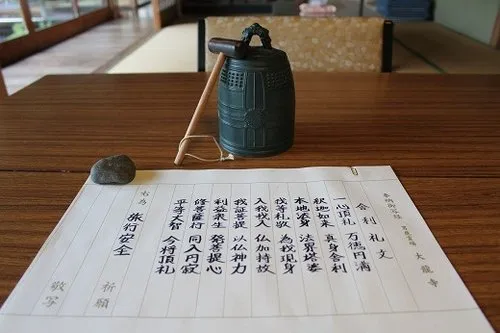 大龍寺
舎利礼文
一心頂礼 万徳円満
釈迦如来 真身舎利
本地法身 法界塔婆
我等礼敬 為我現身
入我我入 仏加持故
我証菩提 以仏神力
利益衆生 発菩提心
修菩薩行 同入円寂
平等大智 今将頂礼
右為 旅行安全
祈願
敬写